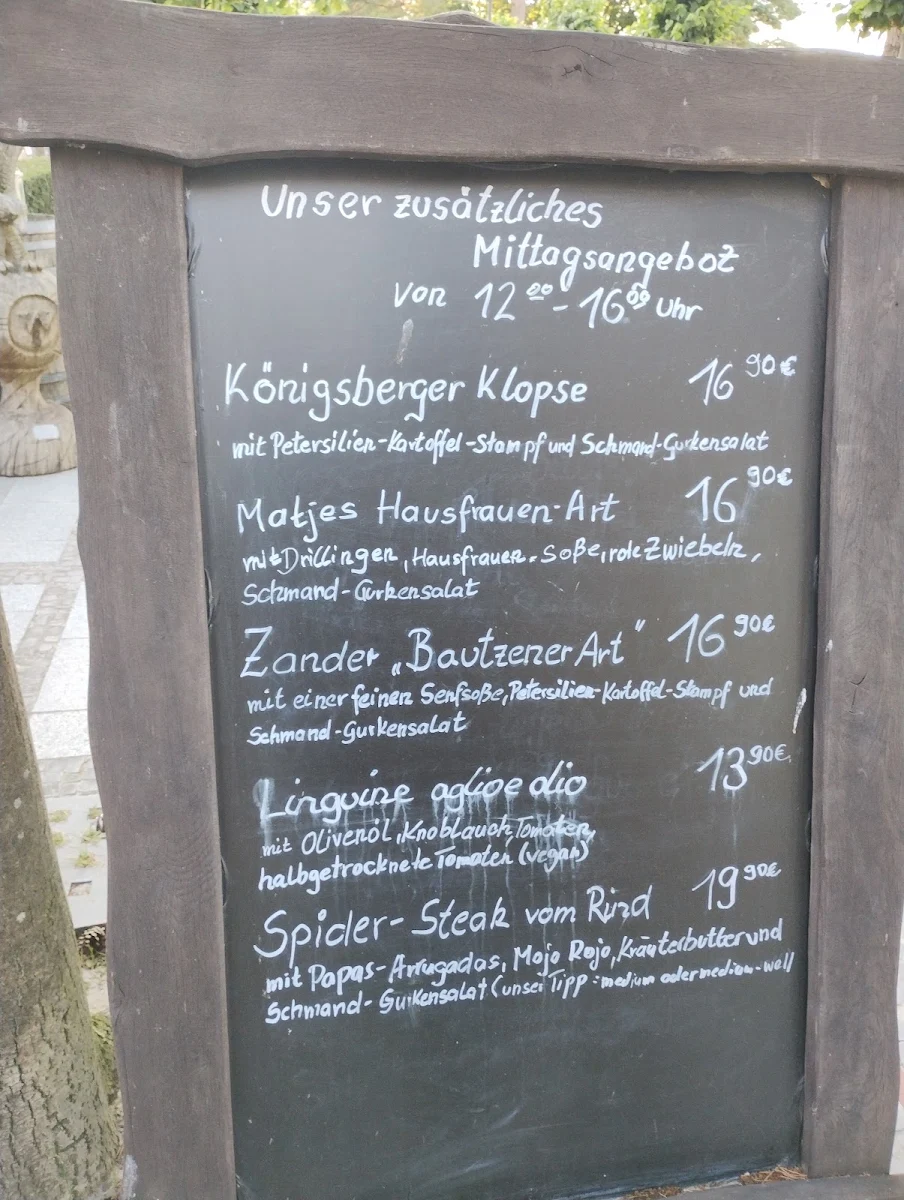 Unser zusätzliches
Mittagsangebot
von 12⁰⁰ - 16⁰⁰ Uhr
Königsberger Klopse 16 90€
mit Petersilien-Kartoffel-Stampf und Schmand-Gurkensalat
Matjes Hausfrauen-Art 16 90€
mit Drillingen, Hausfrauen-Soße, rote Zwiebeln,
Schmand-Gurkensalat
Zander „Bautzener Art" 16 90€
mit einer feinen Senfsoße, Petersilien-Kartoffel-Stampf und
Schmand-Gurkensalat
Linguine aglio e olio 13 90€
mit Olivenöl, Knoblauch, Tomaten,
halbgetrocknete Tomaten (vegan)
Spider-Steak vom Rind 19 90€
mit Papas-Arrugadas, Mojo Rojo, Kräuterbutter und
Schmand-Gurkensalat (unser Tipp: medium oder medium-well